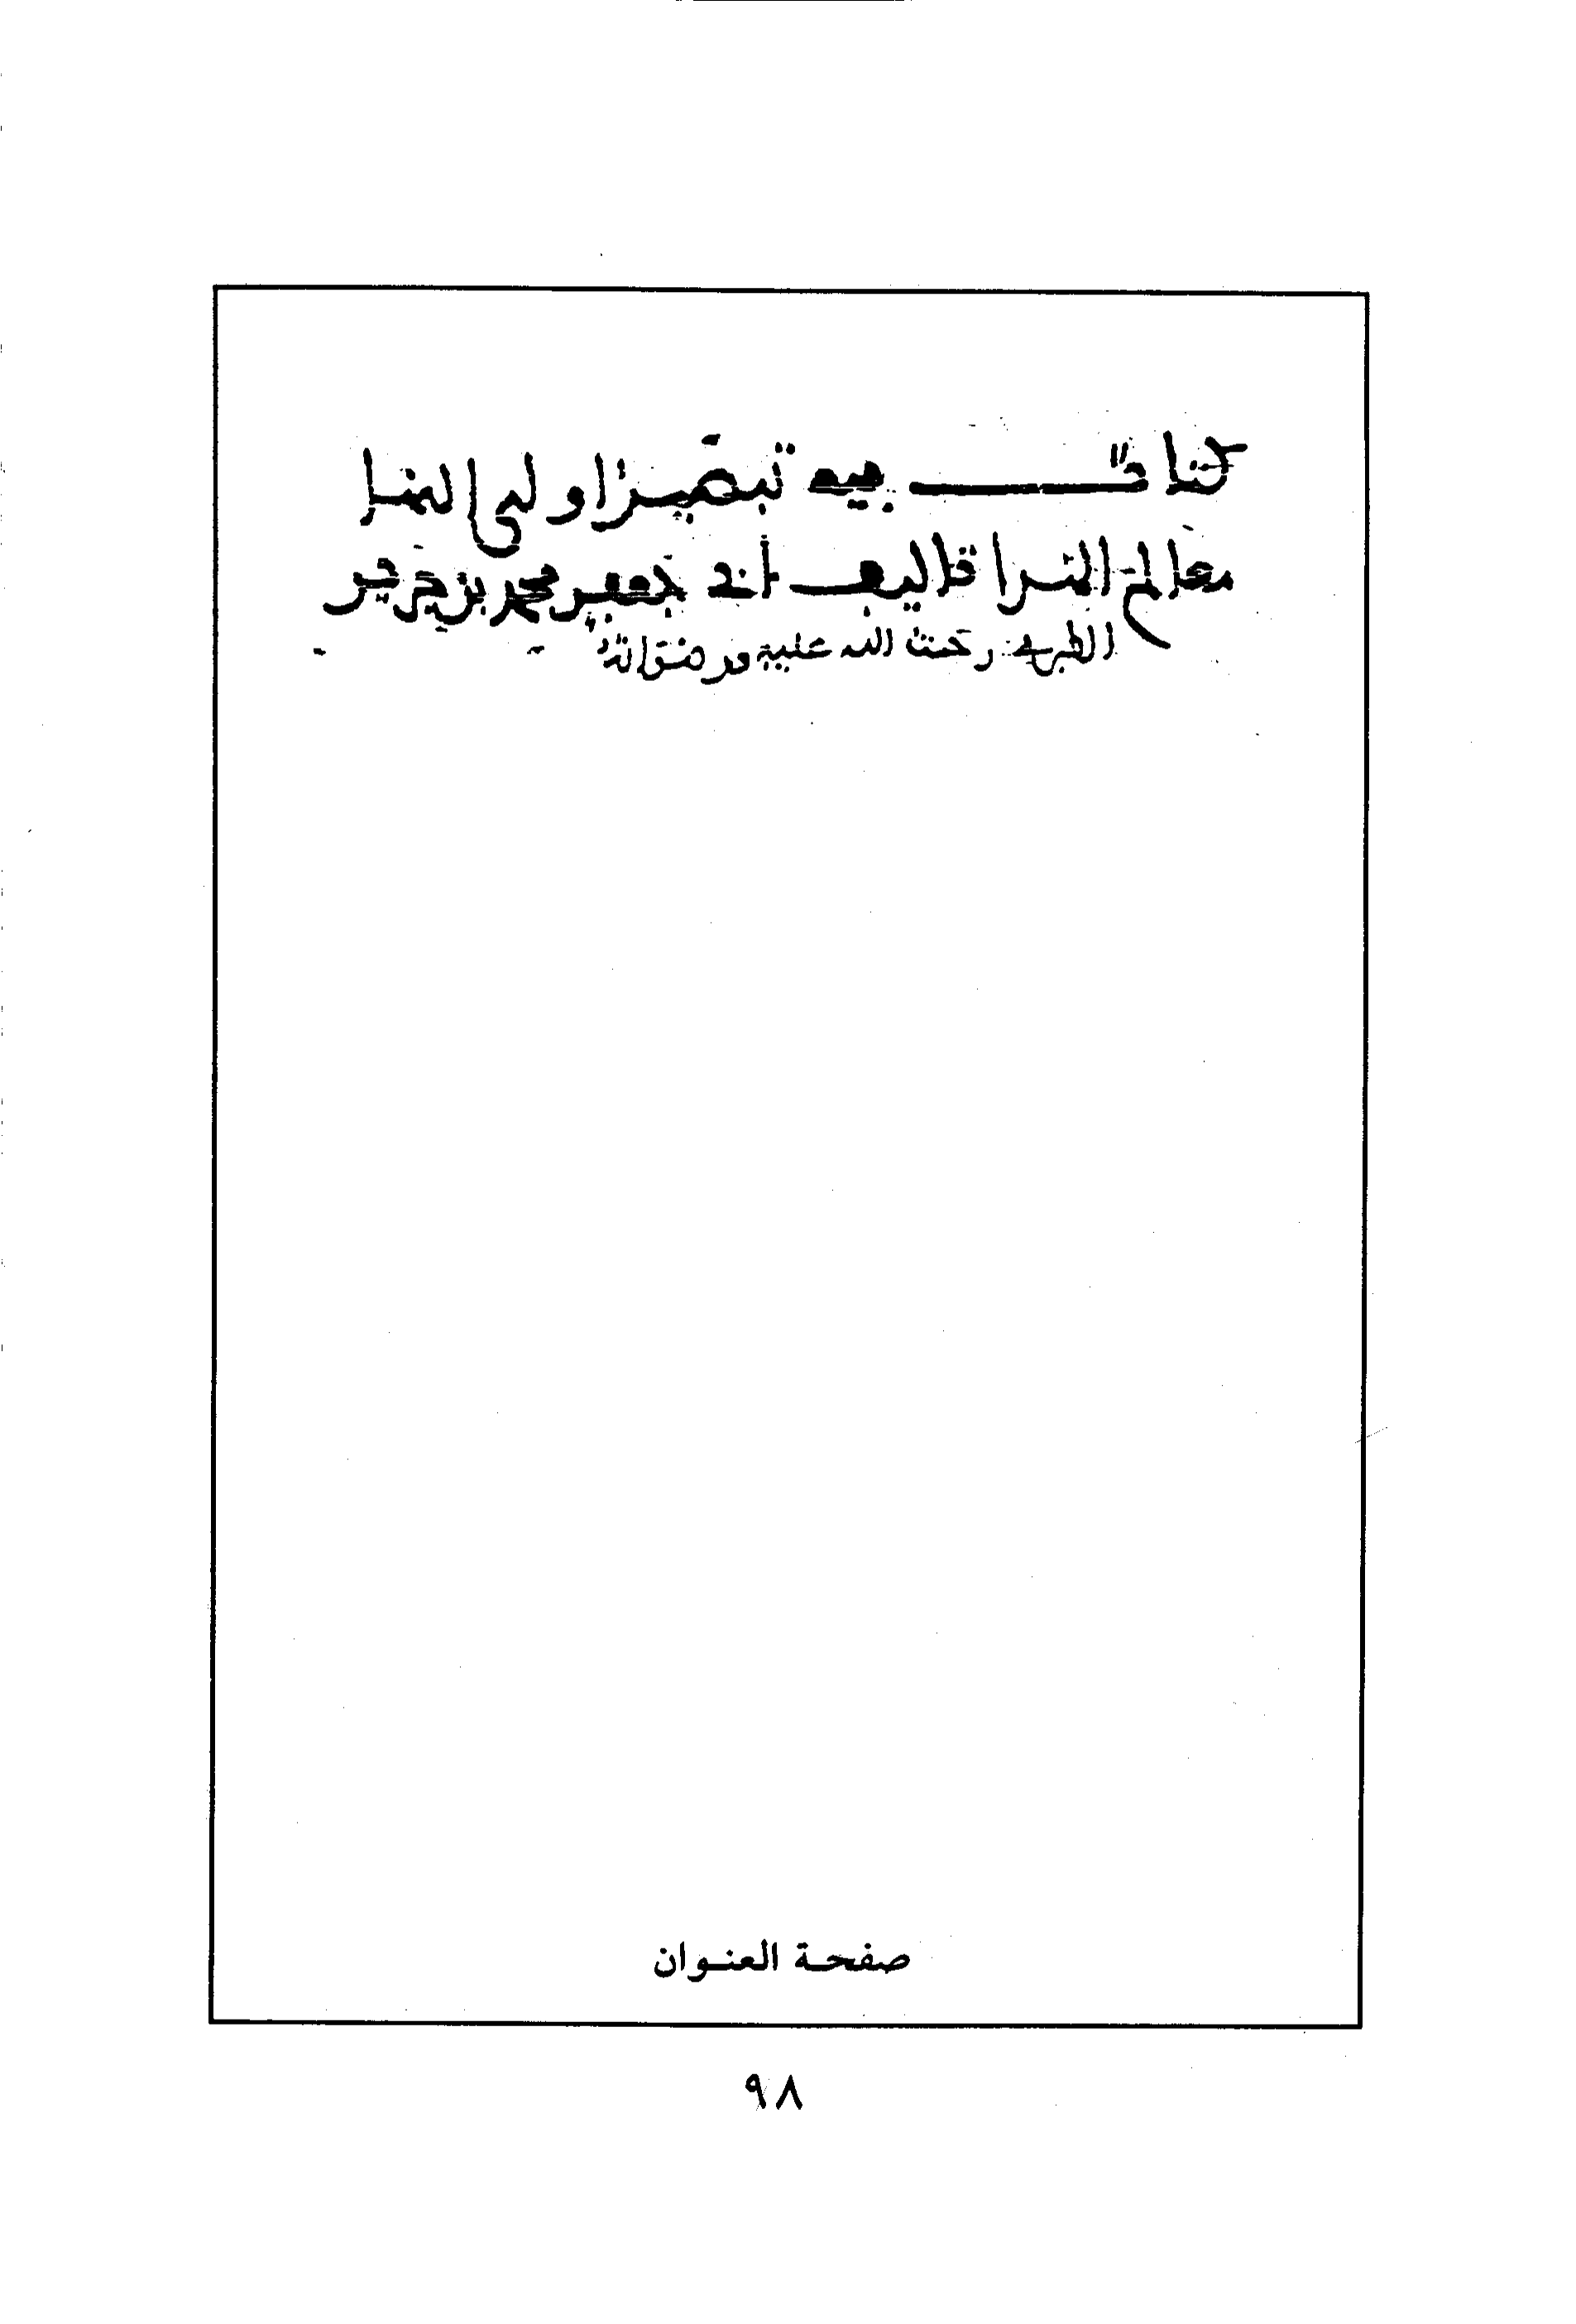 كتاب فيه تبصير اولي النها
معالم الهدا تاليف أبي جعفر محمد بن جرير
الطبري رحمت الله عليه ورضوانه
صفحة العنوان
٩٨